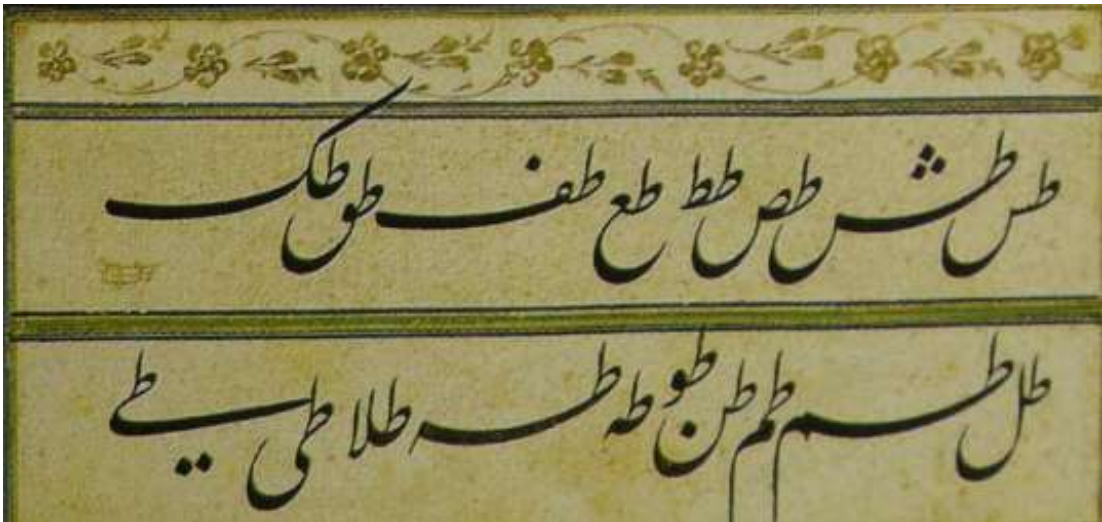 طس طش طص طط طع طف طق طک
طل طم طم طن طو طه طه طلا طی طے